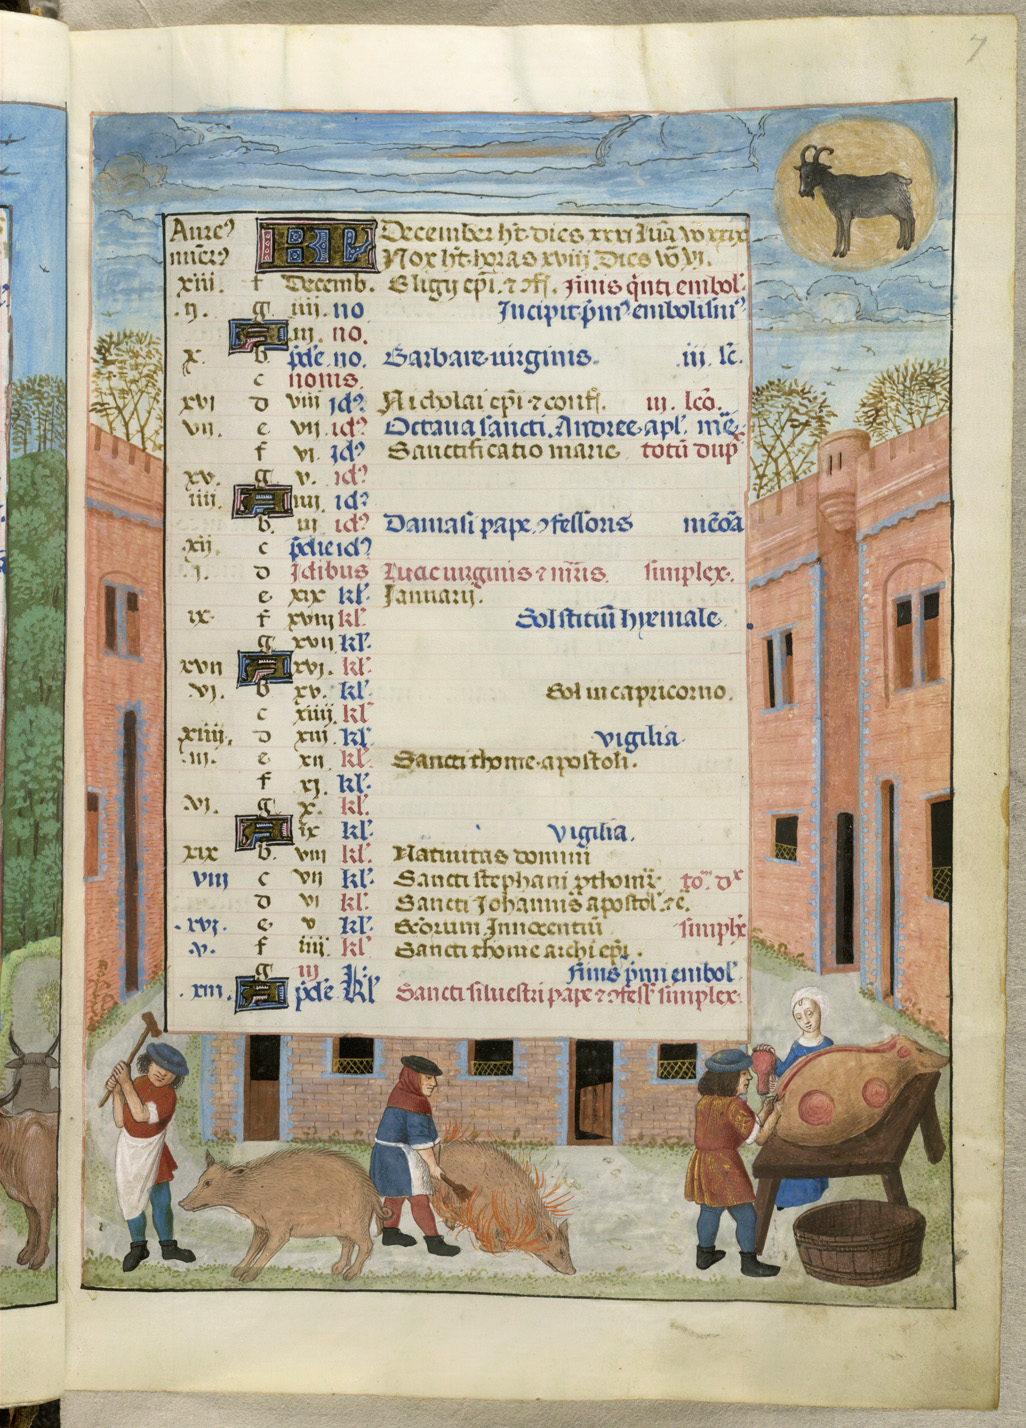 7
Aure⁹ KL December hꝫ dies xxxi Luā vo xxix
nūerꝰ Nox hꝫ horas xviij. Dies vō vj.
xiii f Decemb. Eligij ep̄i. ⁊ ɔff. finis qn̄ti embol.
.ij. g iiij no Incipit pm̄⁹ embolism⁹
A iij. no.
x. b pd̄e. no. Barbare virginis. .iii. lc̄.
c nonis.
xvi d viij id⁹ Nicholai ep̄i ⁊ conf. iii. lcō.
vii. e vij. id⁹ Octaua sancti. Andree apl. mē.
f vi. id⁹ Sanctificatio marie totū dup
xv. g v. id⁹
iiii. A iiij id⁹
b. iij id⁹ Damasi pape ɔfessoris mēōa
xij c pd̄ie id⁹
.i. d Idibus Lucie uirginis ⁊ mr̄is. simplex.
e xix kl⁹ Januarij.
ix. f xviij kl⁹ Solstitiū hyemale.
g xvij kl⁹
xvii A xvj. kl⁹
.vj. b xv. kl⁹ Sol in capricorno.
c xiiij kl⁹
xiiii. d xiij kl⁹ vigilia.
.iii. e xij kl⁹ Sancti thome apostoli.
f xj. kl⁹
.vj. g x. kl⁹
A ix kl⁹ vigilia.
xix b. viij kl⁹ Natiuitas domini
viii c vij kl⁹ Sancti stephani
d vj kl⁹ Sancti Johannis apostol.
.xvj. e v kl⁹ Sc̄orum Innocentiū simplx
.v. f iiij kl⁹ Sancti thome archiep̄i.
g iij finis pm̄i embol
.xiii. A pd̄e. Kl Sancti siluestri pape ⁊ ɔfess. simplex.